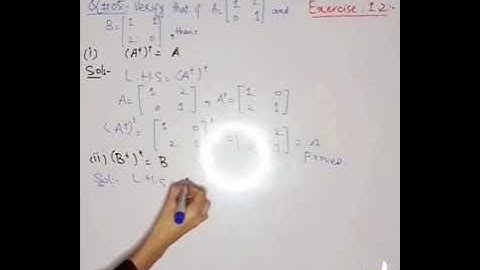 Q#05:- Verify that if A= [1 2
0 1] and
Exercise: 1.2:-
B= [1 1
2 0], then:
(i) (Aᵗ)ᵗ = A
Sol:- L.H.S = (Aᵗ)ᵗ
A= [1 2
0 1], Aᵗ= [1 0
2 1]
(Aᵗ)ᵗ = [1 0
2 ]ᵗ = [ 2
] = A
Proved.
(ii) (Bᵗ)ᵗ = B
Sol:- L.H.S